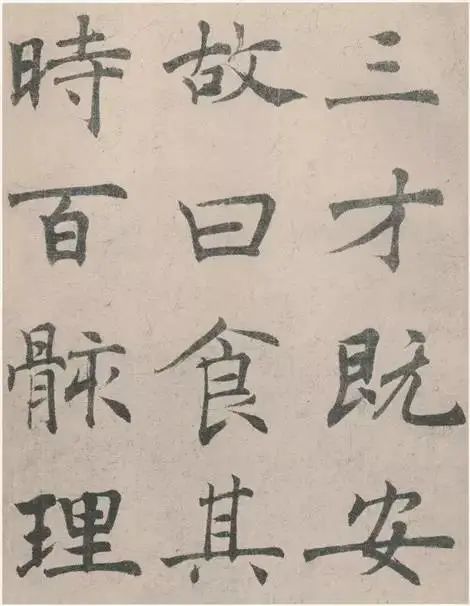 三才既安
故曰食其
時百骸理